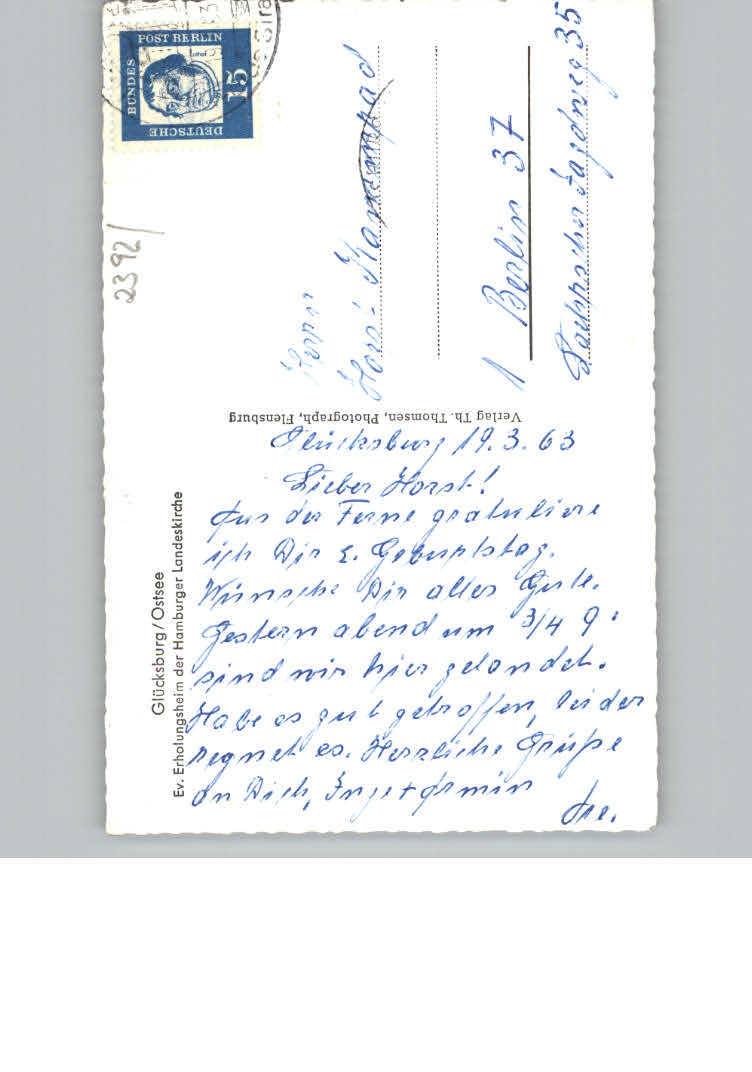 DEUTSCHE
BUNDES
POST BERLIN
15
2392/
Glücksburg/Ostsee
Ev. Erholungsheim der Hamburger Landeskirche
Verlag Th. Thomsen, Photograph, Flensburg
Glücksburg 19.3.63
Lieber Horst!
Aus der Ferne gratuliere
ich Dir z. Geburtstag.
Wünsche Dir alles Gute.
Gestern abend um 3/4 9
sind wir hier gelandet.
Habe es gut getroffen, leider
regnet es. Herzliche Grüße
an Dich, Inge + Armin
Herrn
Horst
1 Berlin 37
35